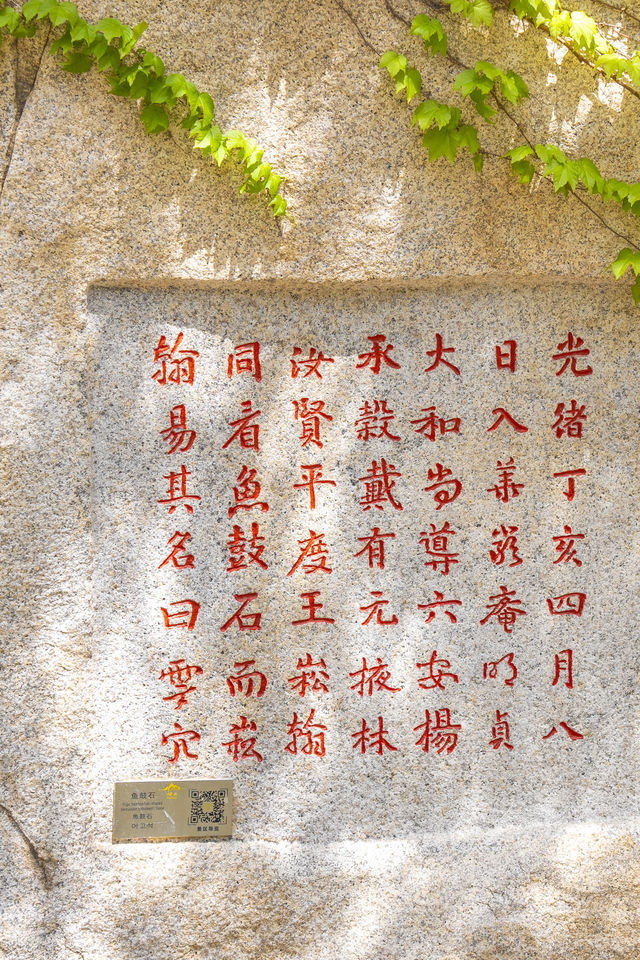 光緒丁亥四月八
日入華嚴庵明貞
大和尚導六安楊
承穀戴有元掖林
汝賢平度王崧翰
同看魚鼓石而崧
翰易其名曰雲穴
鱼鼓石
魚鼓石
어고석
景区导览